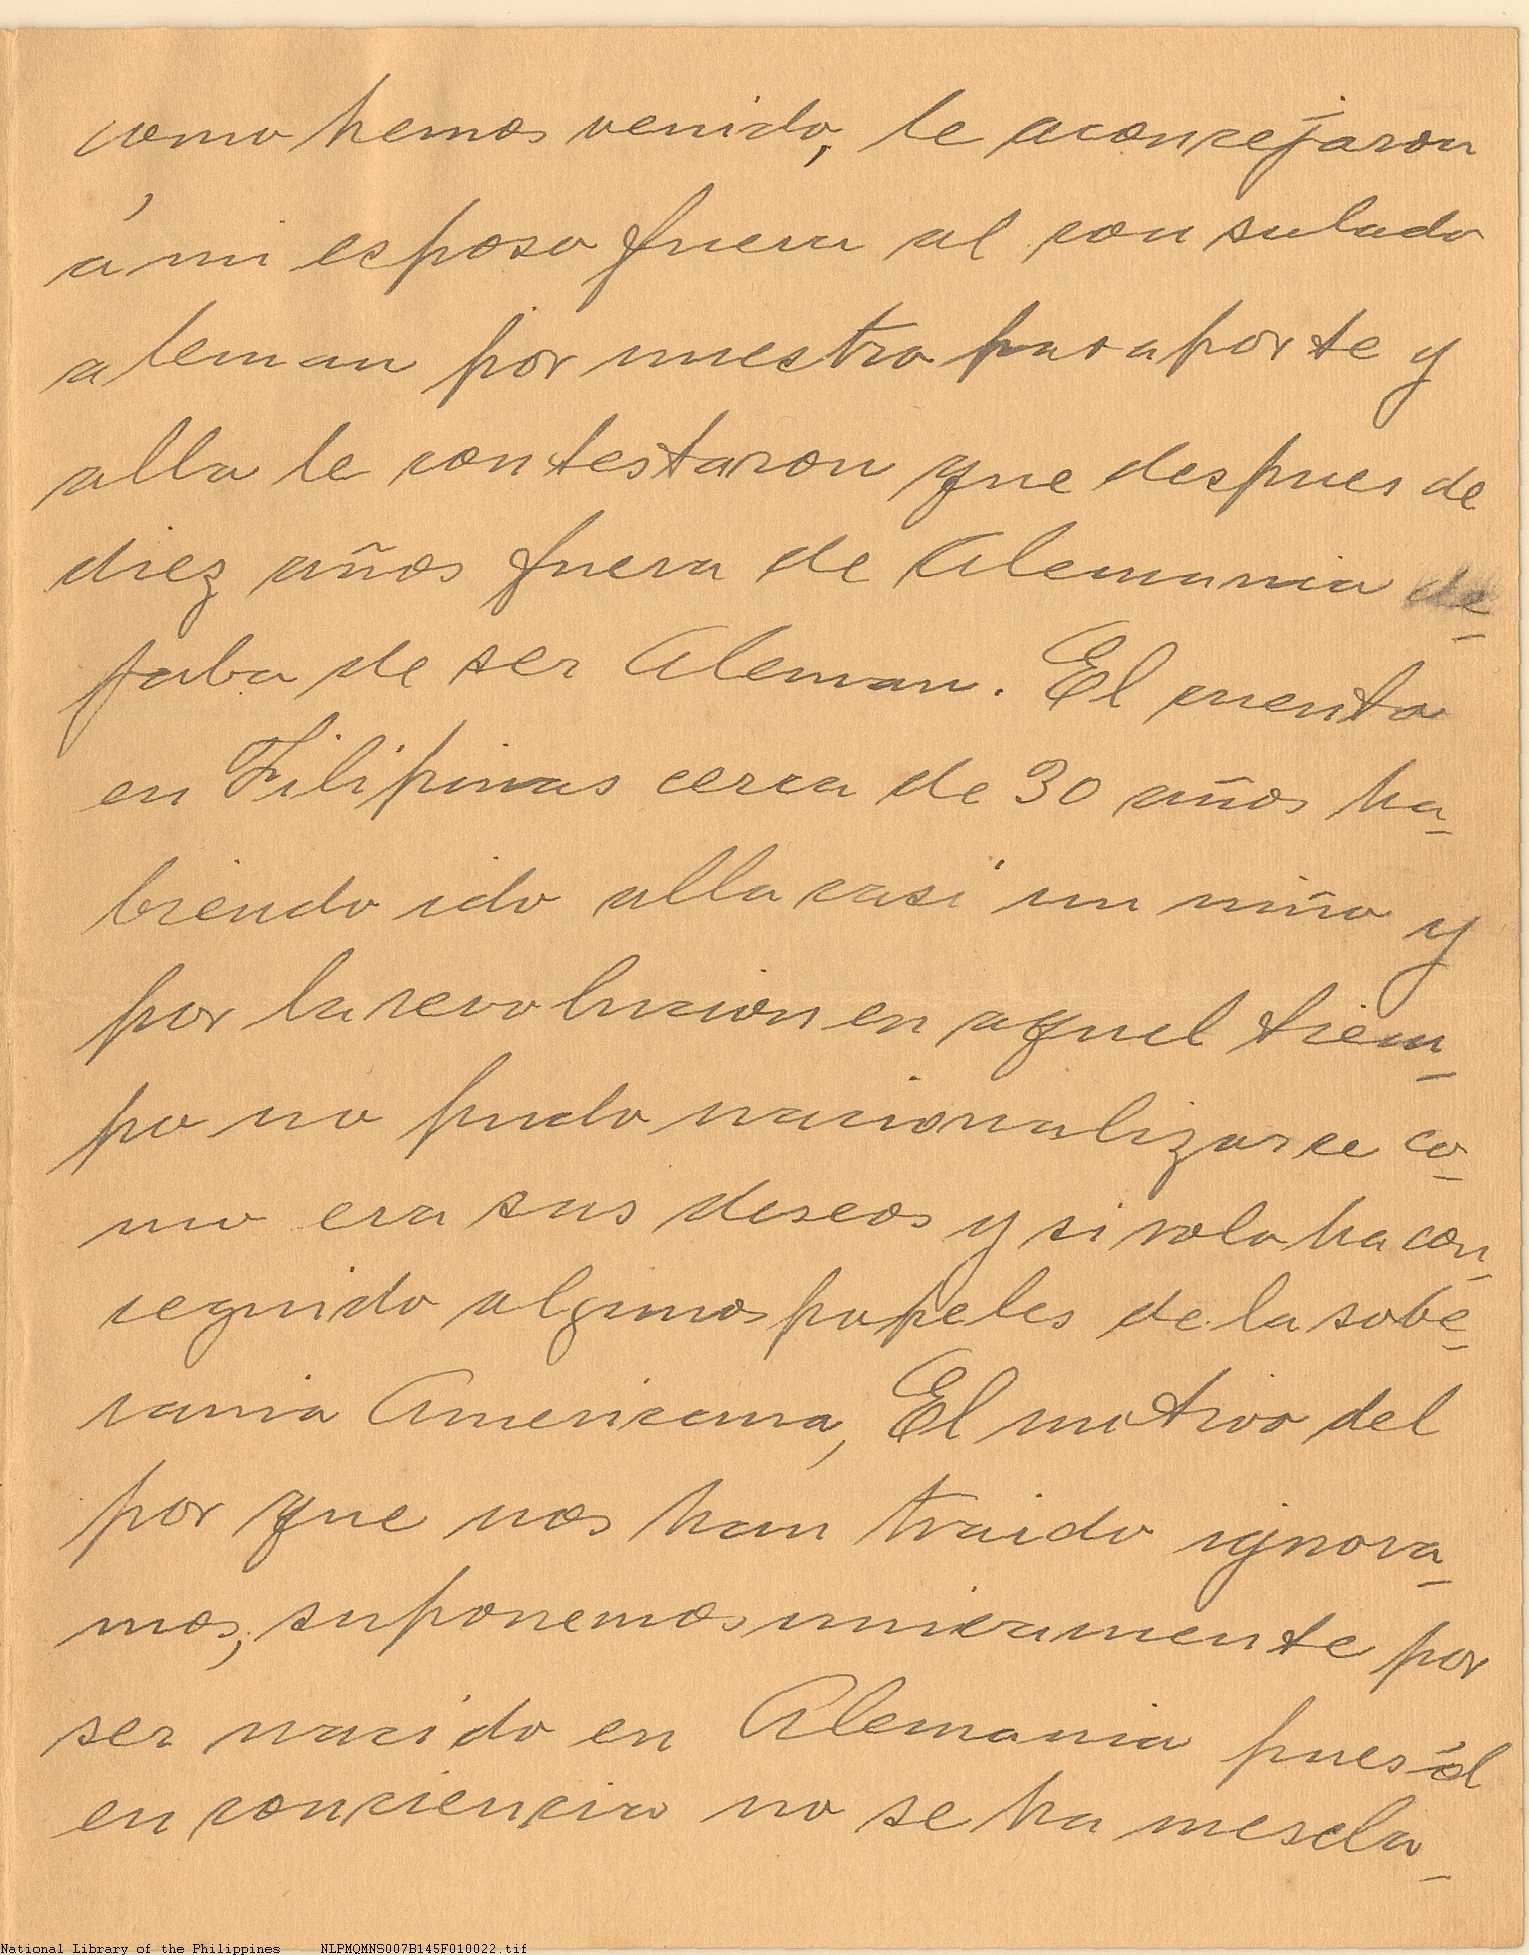 como hemos venido, le aconcejaron
á mi esposo fuera al consulado
aleman por nuestro pasaporte y
alla le contestaron que despues de
diez años fuera de Alemania de-
jaba de ser Aleman. El cuenta
en Filipinas cerca de 30 años ha-
biendo ido alla casi un niño y
por la revolucion en aquel tiem-
po no pudo nacionalizarce co-
mo era sus deseos y si solo ha con-
ceguido algunos papeles de la sobe-
rania Americana, El motivo del
por que nos han traido ignora-
mos, suponemos unicamente por
ser nacido en Alemania pues él
en conciencia no se ha mescla-
National Library of the Philippines NLPMQMNS007B145F010022.tif